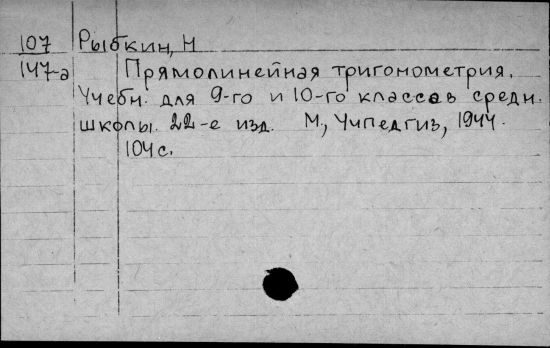 107 Рыбкин, Н
147-а Прямолинейная тригонометрия.
Учебн. для 9-го и 10-го классов средн.
школы. 22-е изд. М, Учпедгиз, 1944.
104 с.